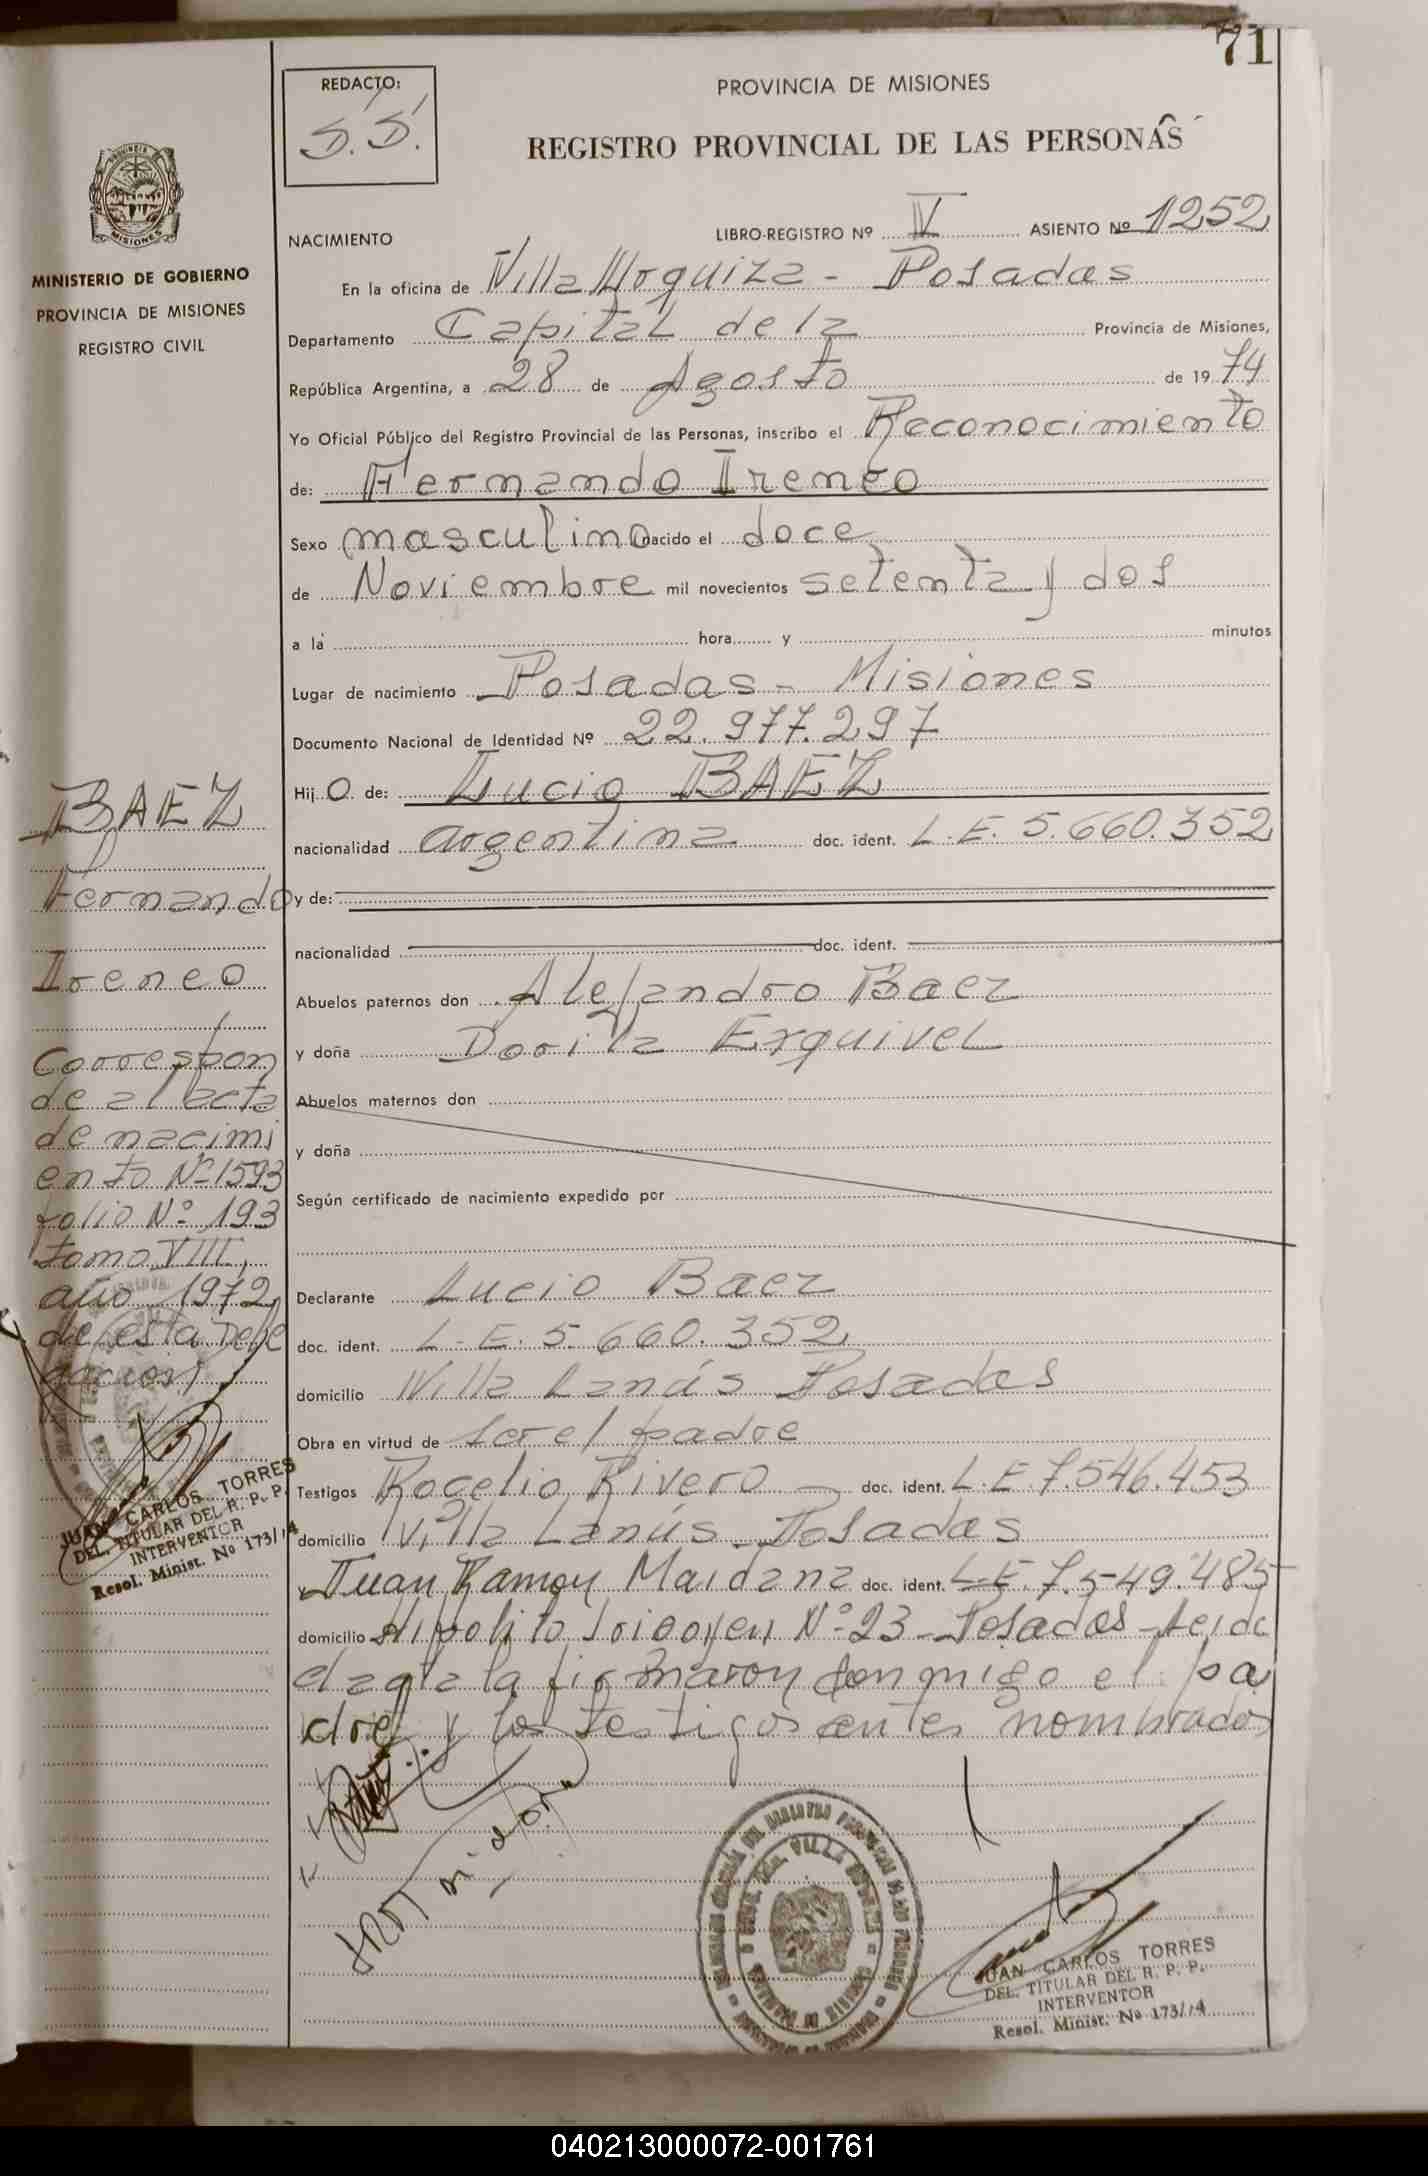 71
REDACTO:
S.S.
PROVINCIA DE MISIONES
REGISTRO PROVINCIAL DE LAS PERSONAS
NACIMIENTO LIBRO-REGISTRO Nº V ASIENTO Nº 1252
En la oficina de Villa Urquiza - Posadas
Departamento Capital de la Provincia de Misiones,
República Argentina, a 28 de Agosto de 19 74
Yo Oficial Público del Registro Provincial de las Personas, inscribo el Reconocimiento
de: Fernando Ireneo
Sexo masculino nacido el doce
de Noviembre mil novecientos setenta y dos
a la hora y minutos
Lugar de nacimiento Posadas - Misiones
Documento Nacional de Identidad Nº 22.977.297
Hij o de: Lucio BAEZ
nacionalidad argentina doc. ident. L.E. 5.660.352
y de:
nacionalidad doc. ident.
Abuelos paternos don Alejandro Baez
y doña Dorila Exquivel
Abuelos maternos don
y doña
Según certificado de nacimiento expedido por
Declarante Lucio Baez
doc. ident. L.E. 5.660.352
domicilio Villa Lanús Posadas
Obra en virtud de ser el padre
Testigos Rogelio Rivero doc. ident. L.E 7.546.453
domicilio Villa Lanús - Posadas
Juan Ramon Maidana doc. ident. L.E. 7.549.485
domicilio Hipolito Irigoyen Nº 23 - Posadas - Leida
el acta la firmaron conmigo el pa
dre y los testigos antes nombrados
JUAN CARLOS TORRES
DEL. TITULAR DEL R. P. P.
INTERVENTOR
Resol. Minist. Nº 173/74
PROVINCIA
MISIONES
MINISTERIO DE GOBIERNO
PROVINCIA DE MISIONES
REGISTRO CIVIL
BAEZ
Fernando
Ireneo
Correspon
de al acta
de nacimi
ento Nº 1593
folio Nº 193
tomo VIII,
año 1972
de esta dele
gacion
JUAN CARLOS TORRES
DEL. TITULAR DEL R. P. P.
INTERVENTOR
Resol. Minist. Nº 173/74
040213000072-001761